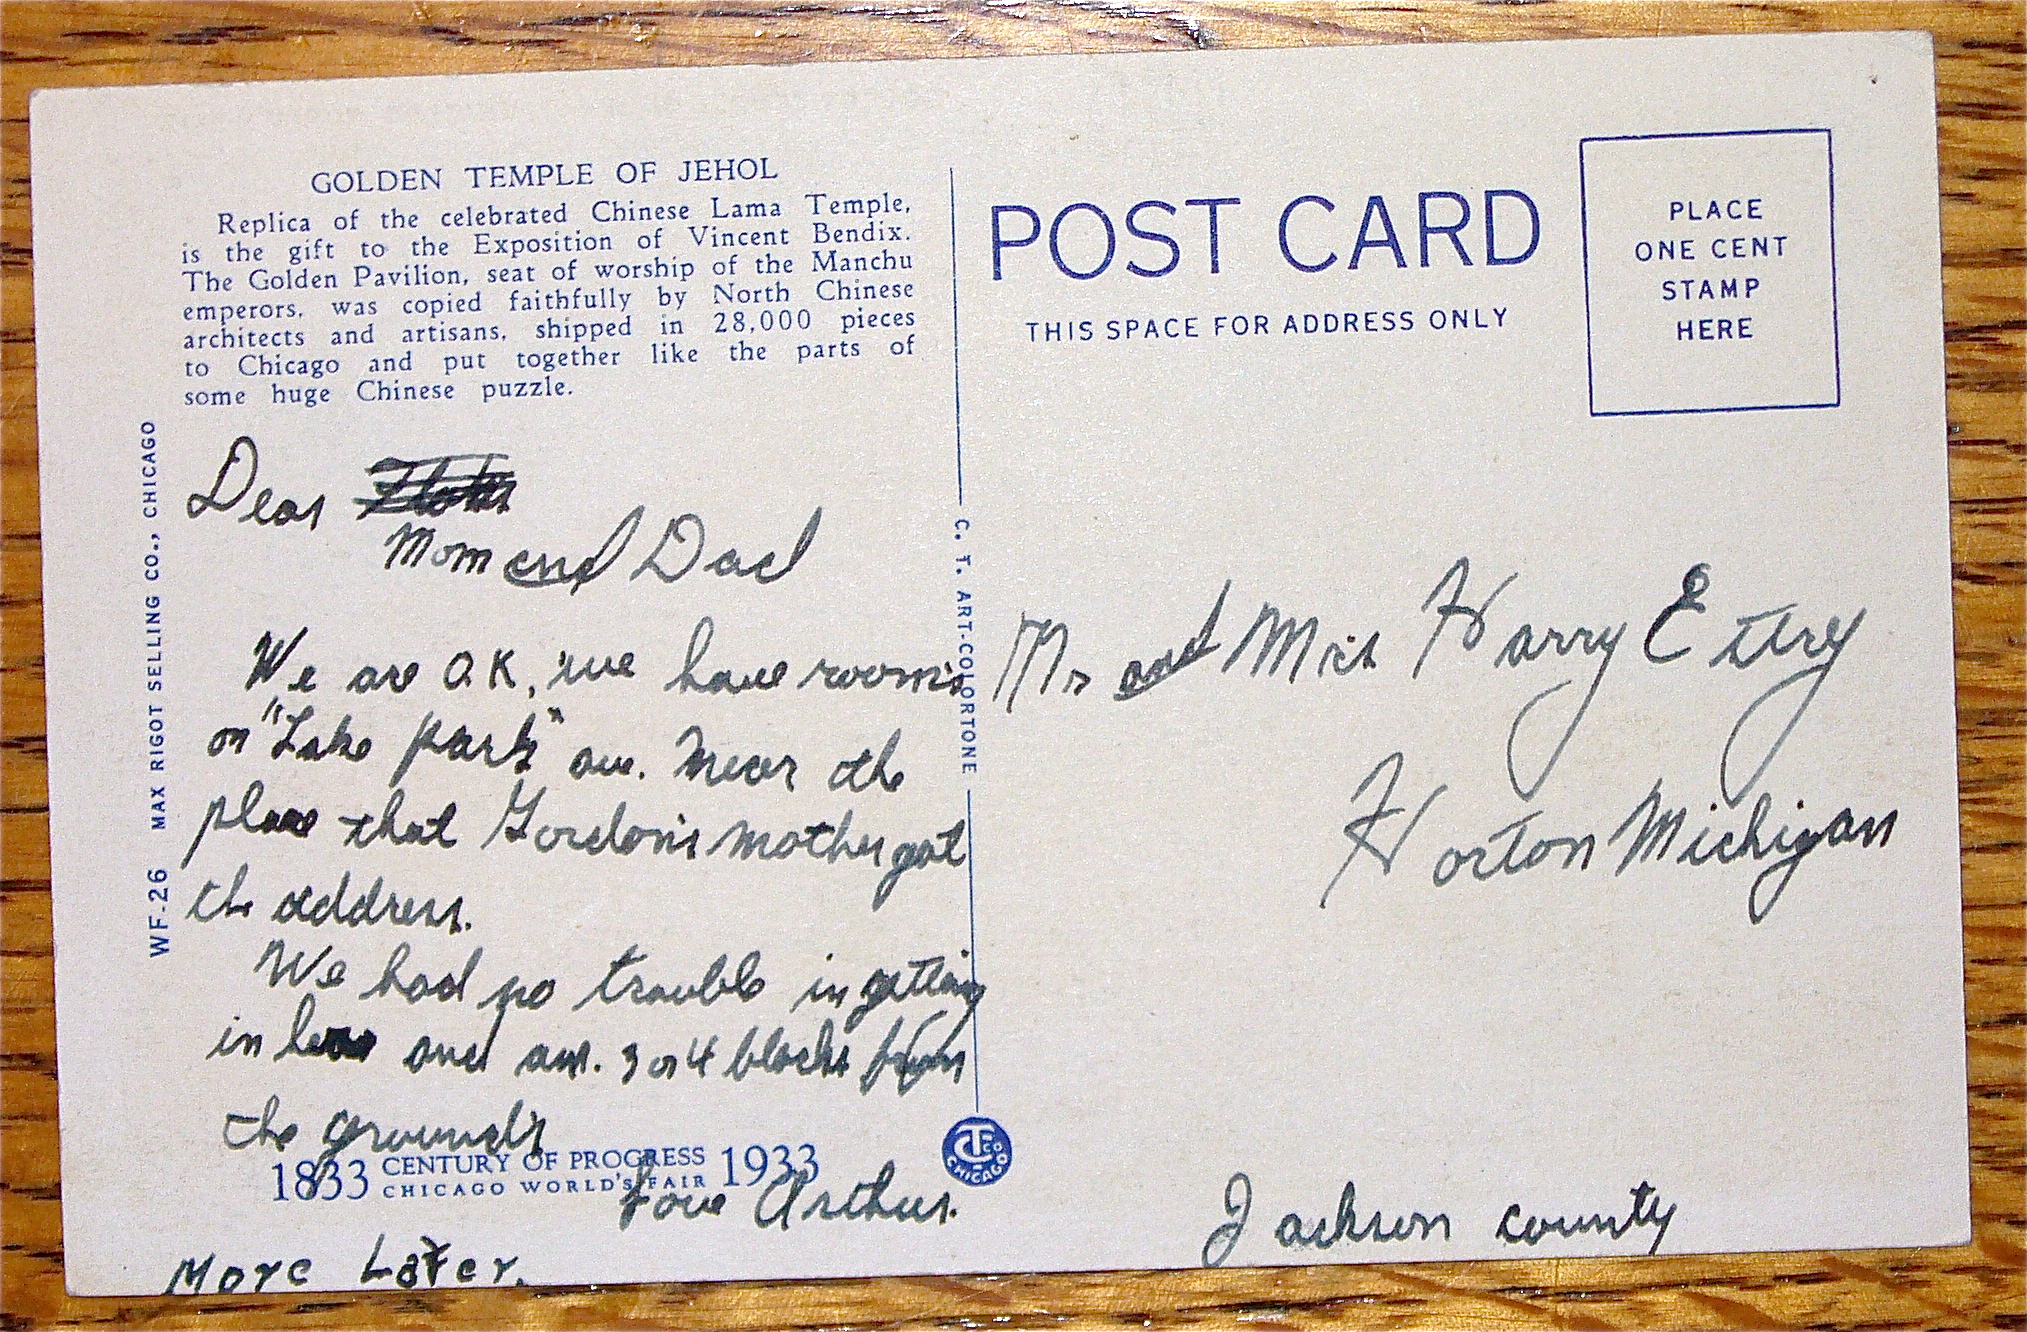 GOLDEN TEMPLE OF JEHOL
Replica of the celebrated Chinese Lama Temple,
is the gift to the Exposition of Vincent Bendix.
The Golden Pavilion, seat of worship of the Manchu
emperors, was copied faithfully by North Chinese
architects and artisans, shipped in 28,000 pieces
to Chicago and put together like the parts of
some huge Chinese puzzle.
Dear
Mom and Dad
We are O.K, we have rooms
on "Lake park" ave. near the
place that Gordon's mother got
the address.
We had no trouble in getting
in here and are. 3 or 4 blocks from
the grounds
1833 CENTURY OF PROGRESS 1933
CHICAGO WORLD'S FAIR
Love Arthur.
More Later.
WF-26 MAX RIGOT SELLING CO., CHICAGO
C. T. ART-COLORTONE
POST CARD
THIS SPACE FOR ADDRESS ONLY
PLACE
ONE CENT
STAMP
HERE
Mr and Mrs Harry Ettrey
Horton Michigan
Jackson county
CHICAGO